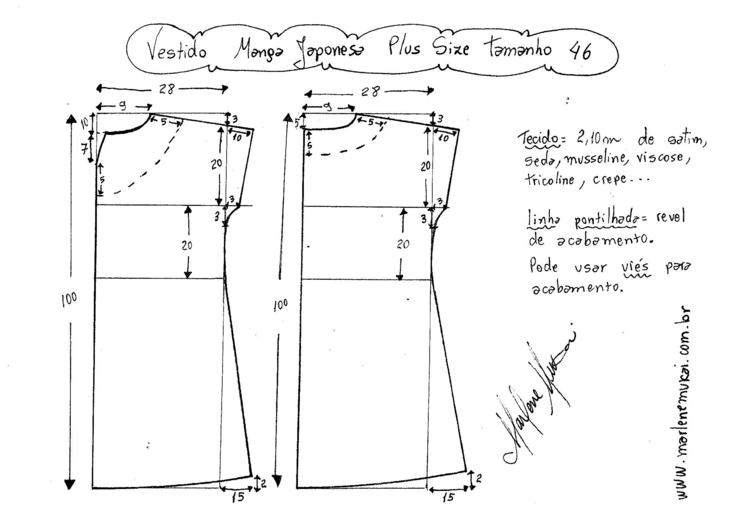 Vestido Manga Japonesa Plus Size Tamanho 46
28
9
10
3
5
10
7
20
5
3
3
20
100
2
15
28
9
5
3
5
10
5
20
3
3
20
100
2
15
Tecido = 2,10m de satim,
seda, musseline, viscose,
tricoline, crepe...
linha pontilhada = revel
de acabamento.
Pode usar viés para
acabamento.
Marlene Mukai
www.marlenemukai.com.br